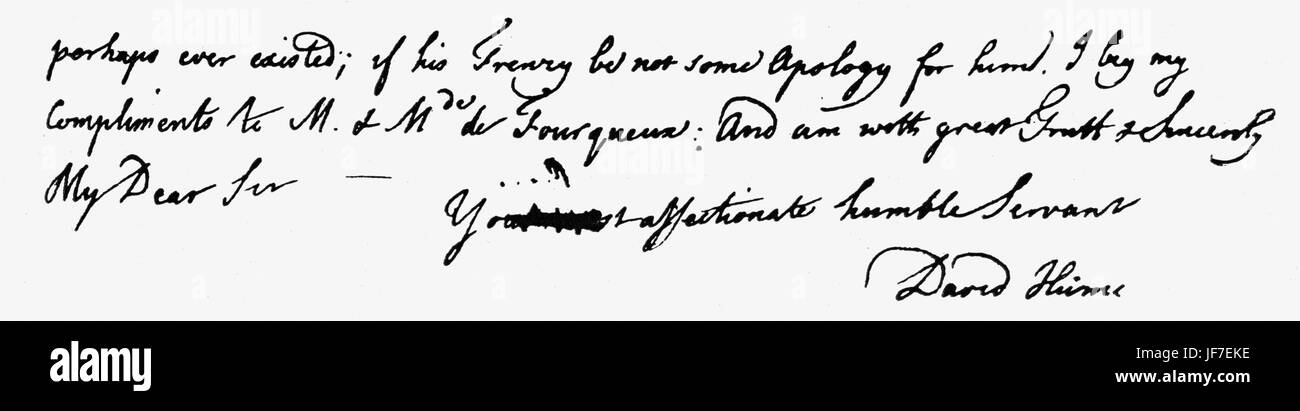 perhaps ever existed; if his Frenzy be not some Apology for him. I beg my
Compliments to M. & Mde de Fourqueux: And am with great Truth & Sincerity
My Dear Sir —
affectionate humble Servant
David Hume
alamy
Image ID: JF7EKE
www.alamy.com